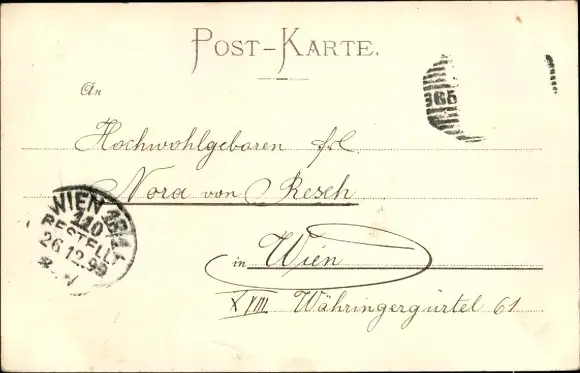 POST-KARTE.
An
365
Hochwohlgeboren Frl
Nora von Resch
WIEN 18/1
110
BESTELLT
26.12.99
in Wien
XVIII Währingergürtel 61